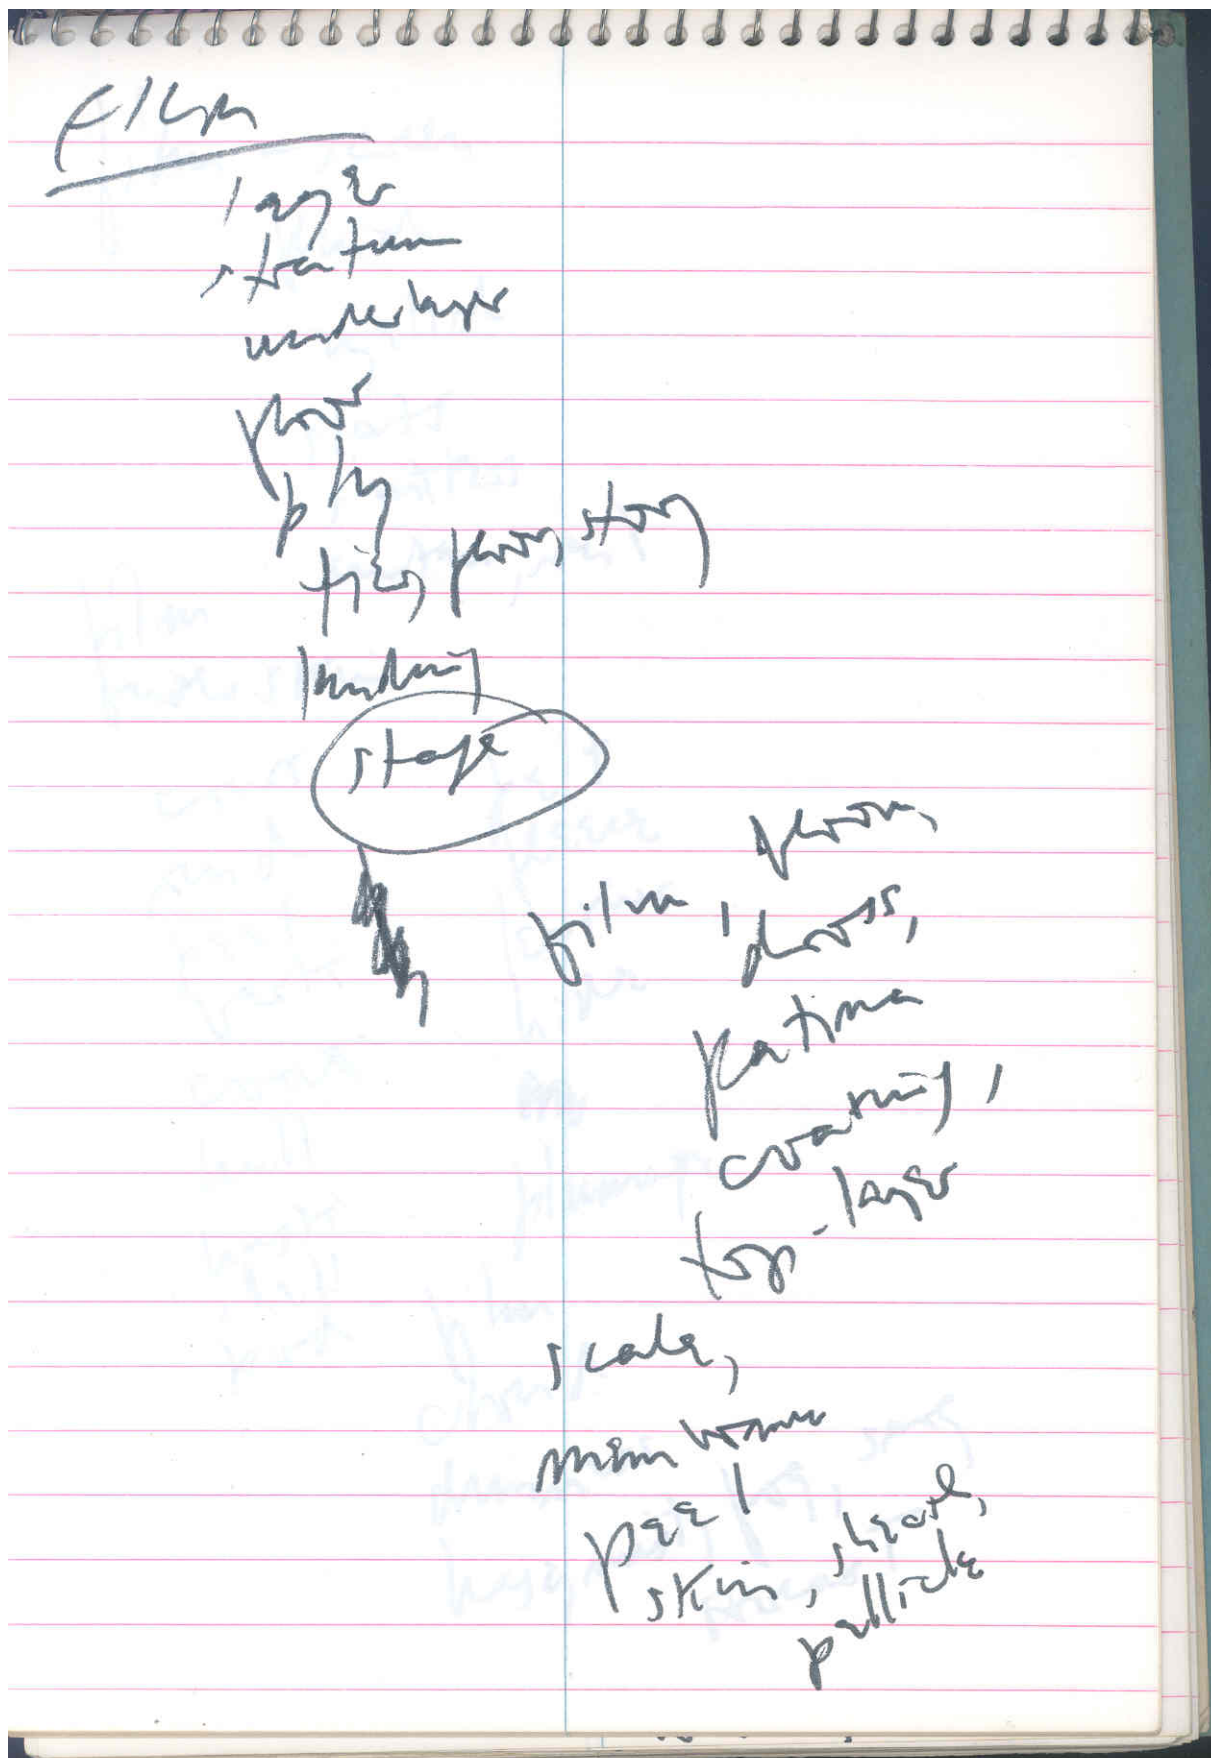 Film
layer
stratum
underlayer
floor
ply
tier, floor, story
landing
stage
film, dross,
patina
coating,
top-layer
scale,
membrane
peel
skin,
pellicle